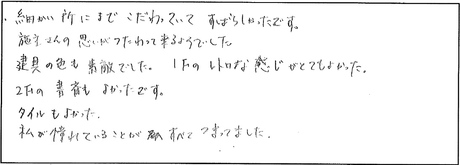 ・細かい所にまでこだわっていて すばらしかったです。
施主さんの思いがつたわって来るようでした。
建具の色も素敵でした。 1Fのレトロな感じがとてもよかった。
2Fの書斎もよかったです。
タイルもよかった。
私が憧れていることが すべてつまってました。